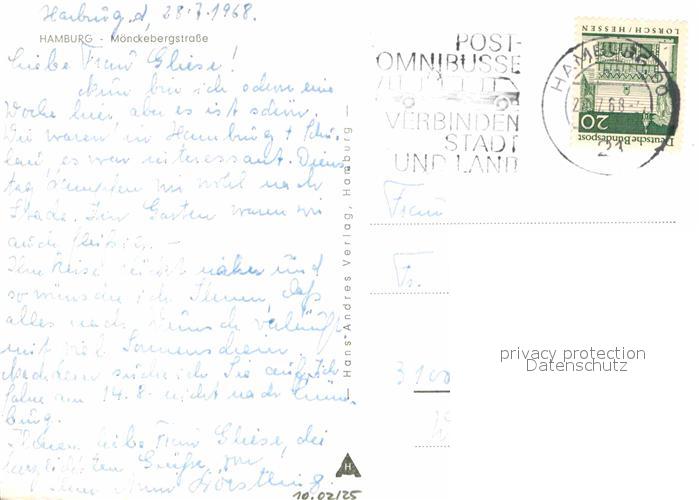 Harburg, d, 28.7.1968.
HAMBURG - Mönckebergstraße
Liebe Frau Gliese!
Nun bin ich schon eine
Woche hier, aber es ist schön.
Wir waren in Hamburg +
es war interessant. Diens
tag wir wohl nach
Stade. Im Garten waren wir
auch fleißig. —
Ihre Reise rückt näher und
so wünsche ich Ihnen, daß
alles nach Wunsch verläuft
mit viel Sonnenschein.
Nachdem suche ich Sie auf, ich
fahre am 14.8. nicht nach
burg.
Ihnen, liebe Frau Gliese, die
herzlichsten Grüße von
Ihrer
Hans Andres Verlag, Hamburg
H
10.02/25
POST-
OMNIBUSSE
VERBINDEN
STADT
UND LAND
HAMBURG 90
68
21
LORSCH/HESSEN
20
Deutsche Bundespost
Frau
Fr.
310
privacy protection
Datenschutz